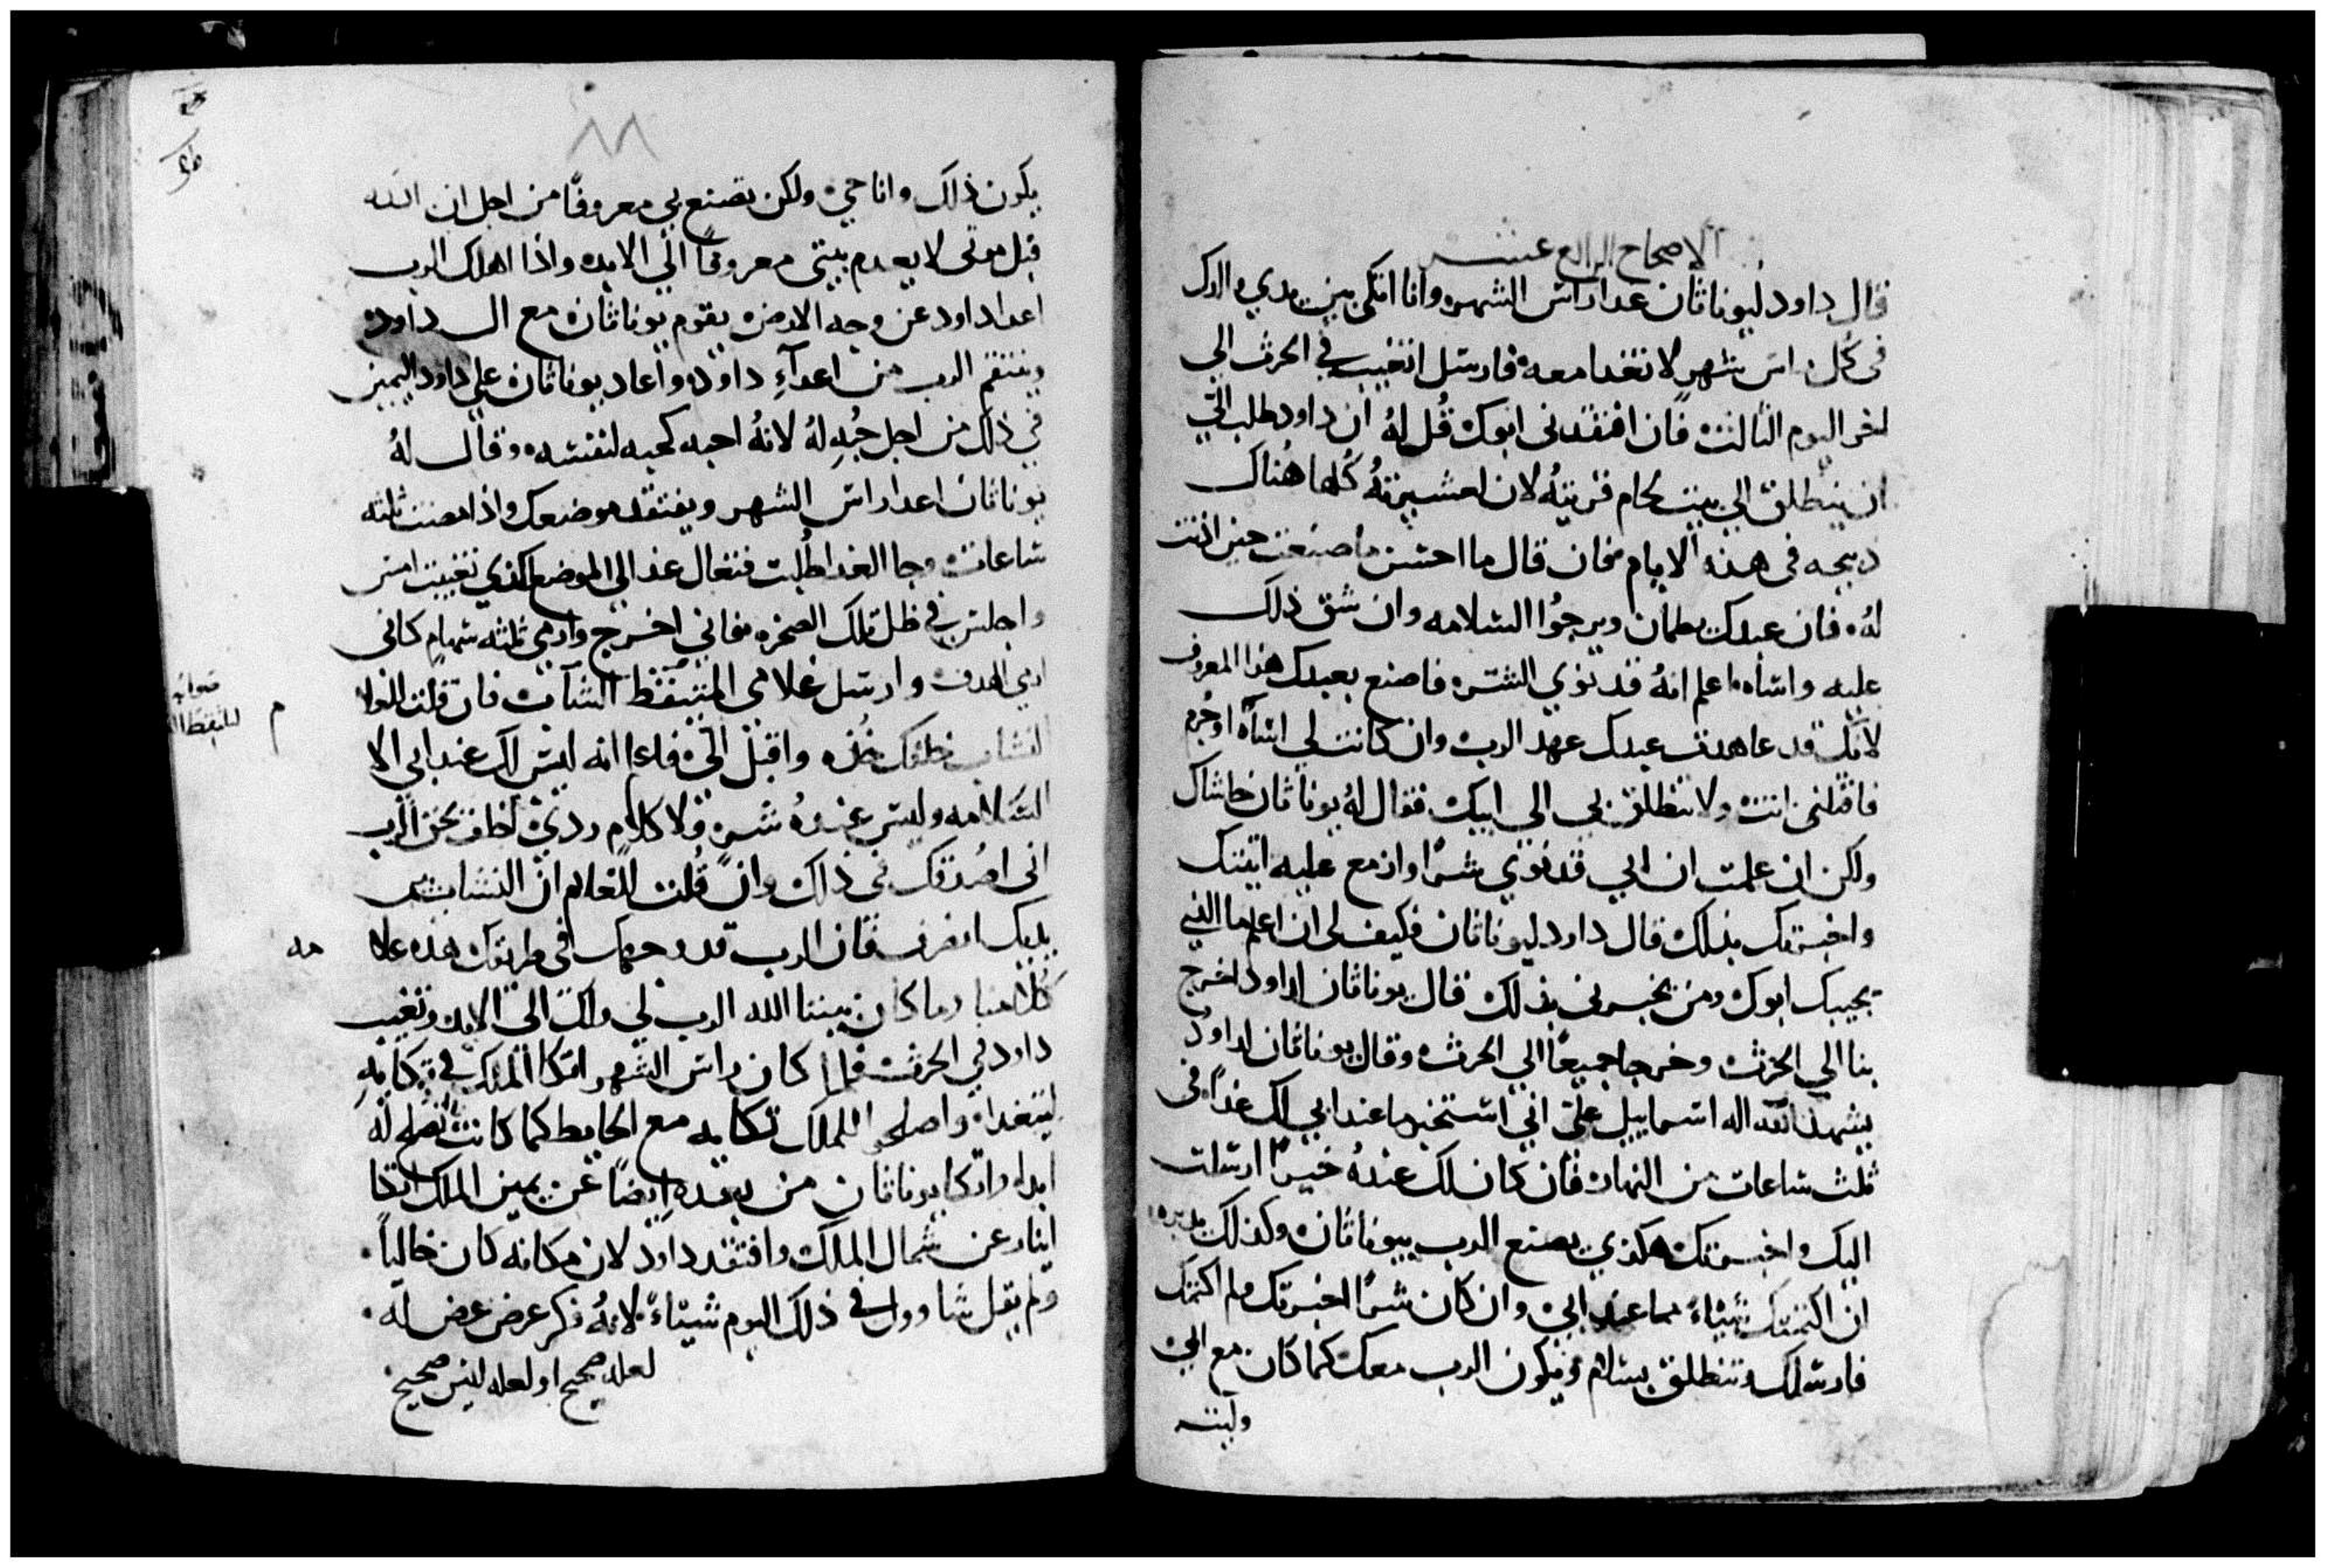 الاصحاح الرابع عشر
قال داود ليوناثان غدا راس الشهر وانا اتكى بين يدي والدك
في كل راس شهر لا نتغدا معه فارسل اتغيب في الحرث الى
اخر اليوم الثالث فان افتقدنى ابوك قُل لهُ ان داود طلب الي
ان ينطلق الي بيت لحام قريتهُ لان لعشيرتهُ كُلها هُناك
دبيحه في هذه الايام فان قال ما احسن ما صنعت حين اذنت
لهُ فان عبدك يطمان ويرجوا السلامه وان شق ذلك
عليه واساه اعلم انهُ قد نوي الشر فاصنع بعبدك هذا المعروف
لانك قد عاهدت عبدك عهد الرب وان كانت لي اساة او جُرم
فاقتلنى انت ولا تنطلق بي الي ابيك فقال لهُ يوناثان حاشاك
ولكن ان علمت ان ابي قد نوي شرًا وازمع عليه اتيتك
واخبرتك بذلك قال داود ليوناثان فكيف لى ان اعلم ما الذي
يجيبك ابوك ومن يخبرنى بذلك قال يوناثان لداود اخرج
بنا الي الحرث وخرجا جميعًا الي الحرث وقال يوناثان لداود
يشهد الله اله اسراييل علىّ اني استخبر ما عند ابي لك غداً فى
ثلث ساعات من النهار فان كان لك عندهُ خيرًا ارسلت
اليك واخبرتك هكذي يصنع الرب بيوناثان وكذلك يزيده
ان اكتمتك شيئاً مما عند ابي وان كان شرًا اخبرتك ولم اكتمك
فارسلك وتنطلق بسلام ويكون الرب معك كما كان مع ابي
وليت
يكون ذلك وانا حي ولكن تصنع بي معروفًا من اجل ان الله
قبل موتى لا يعدم بيتى معروفًا الي الابد واذا اهلك الرب
اعدا داود عن وجه الارض يقوم يوناثان مع ال داود
وينتقم الرب من اعداءِ داود واعاد يوناثان علي داود اليمين
في ذلك من اجل حُبهِ لهُ لانهُ احبه كحبه لنفسه وقال لهُ
يوناثان غدا راس الشهر ويفتقد موضعك واذا مضت ثلثه
ساعات وجا الغد اطُلبت فتعال غد الي الموضع الذي تغيبت امس
واجلس في ظل تلك الصخره فاني اخرج وارمي ثلثه سهام كانى
ارمي الهدف وارسل غلامي المتيقظ النشاب فان قلت للغلام
صوابه
لتلتقط ال
النشاب خلفك خُذه واقبل اليّ فاعلم انه ليس لك عند ابي الا
السلامه وليس عندهُ شر ولا كلام ردى احلف بحق الرب
انى اصُدقك في ذلك وان قُلت للغلام ان النشاب بين
يديك انصرف فان الرب قد وجهك في طريقك هذه علا
مه
كلامنا وما كان بيننا الله الرب لي ولك الى الابد وتغيب
داود في الحرث فلما كان راس الشهر اتكا الملك في تكايهِ
ليتغداه واصلحوا للملك تكايه مع الحايط كما كانت تُصلح لهُ
ابدا واتكا يوناثان من بعده ايضًا عن يمين الملك اتكا
ابنار عن شمال الملك وافتقد داود لان مكانه كان خالياً
ولم يقل شاوول في ذلك اليوم شيئاً لانهُ فكر عرض عرض له
لعله صحيح او لعله ليس صحيح